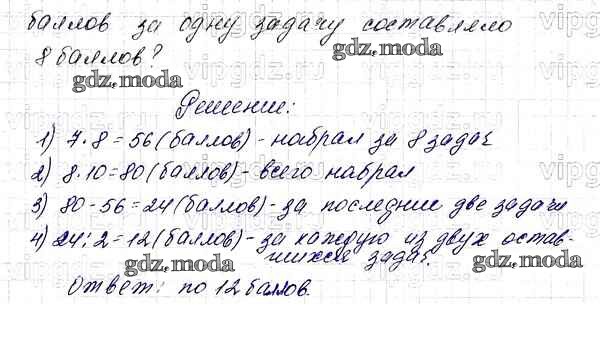 баллов за одну задачу составляло
8 баллов?
Решение:
1) 7·8=56 (баллов) - набрал за 8 задач
2) 8·10=80 (баллов) - всего набрал
3) 80-56=24 (баллов) - за последние две задачи
4) 24:2=12 (баллов) - за каждую из двух остав-
шихся задач.
Ответ: по 12 баллов.
gdz.moda
gdz.moda
gdz.moda
gdz.moda